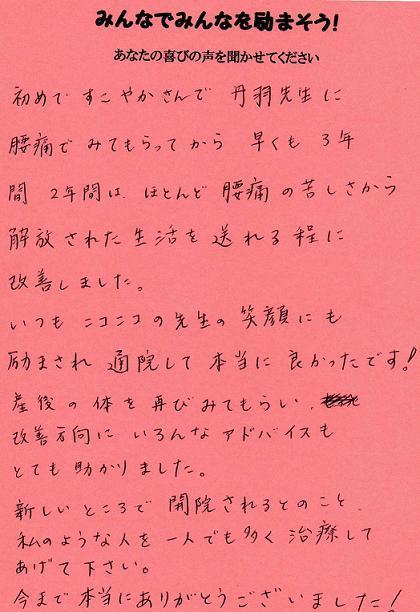 みんなでみんなを励まそう!
あなたの喜びの声を聞かせてください
初めて すこやかさんで 丹羽先生に
腰痛で みてもらってから 早くも 3年
間 2年間は、ほとんど 腰痛 の苦しさから
解放 された 生活を 送れる 程に
改善しました。
いつも ニコニコの先生の 笑顔にも
励まされ 通院して 本当に 良かったです!
産後の体を再びみてもらい、
改善方向に いろんな アドバイスも
とても 助かりました。
新しい ところで 開院されるとのこと、
私のような人を 一人でも多く 治療して
あげて 下さい。
今まで 本当にありがとうございました!